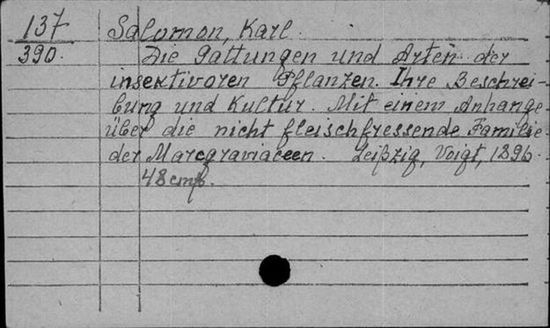 137 Salomon, Karl.
390. Die Gattungen und Arten der
insektivoren Pflanzen. Ihre Beschrei-
bung und Kultur. Mit einem Anhange
über die nicht fleischfressende Familie
der Marcgraviaceen. Leipzig, Voigt, 1896.
48 стр.